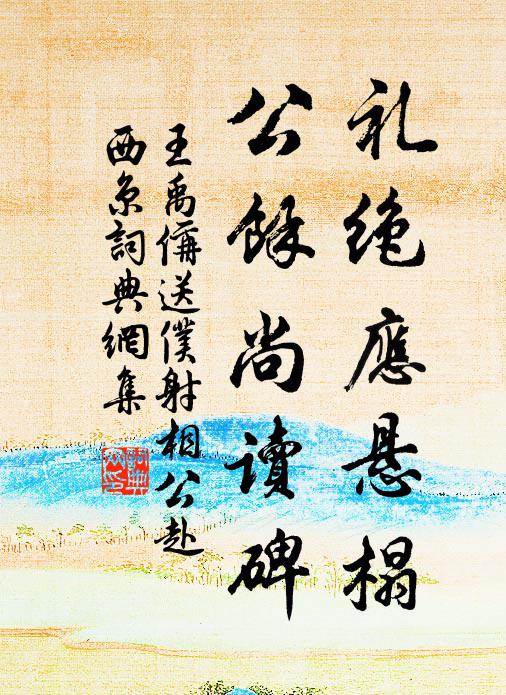 礼绝應悬榻
公餘尚讀碑
王禹偁送僕射相公赴
西京詞典網集